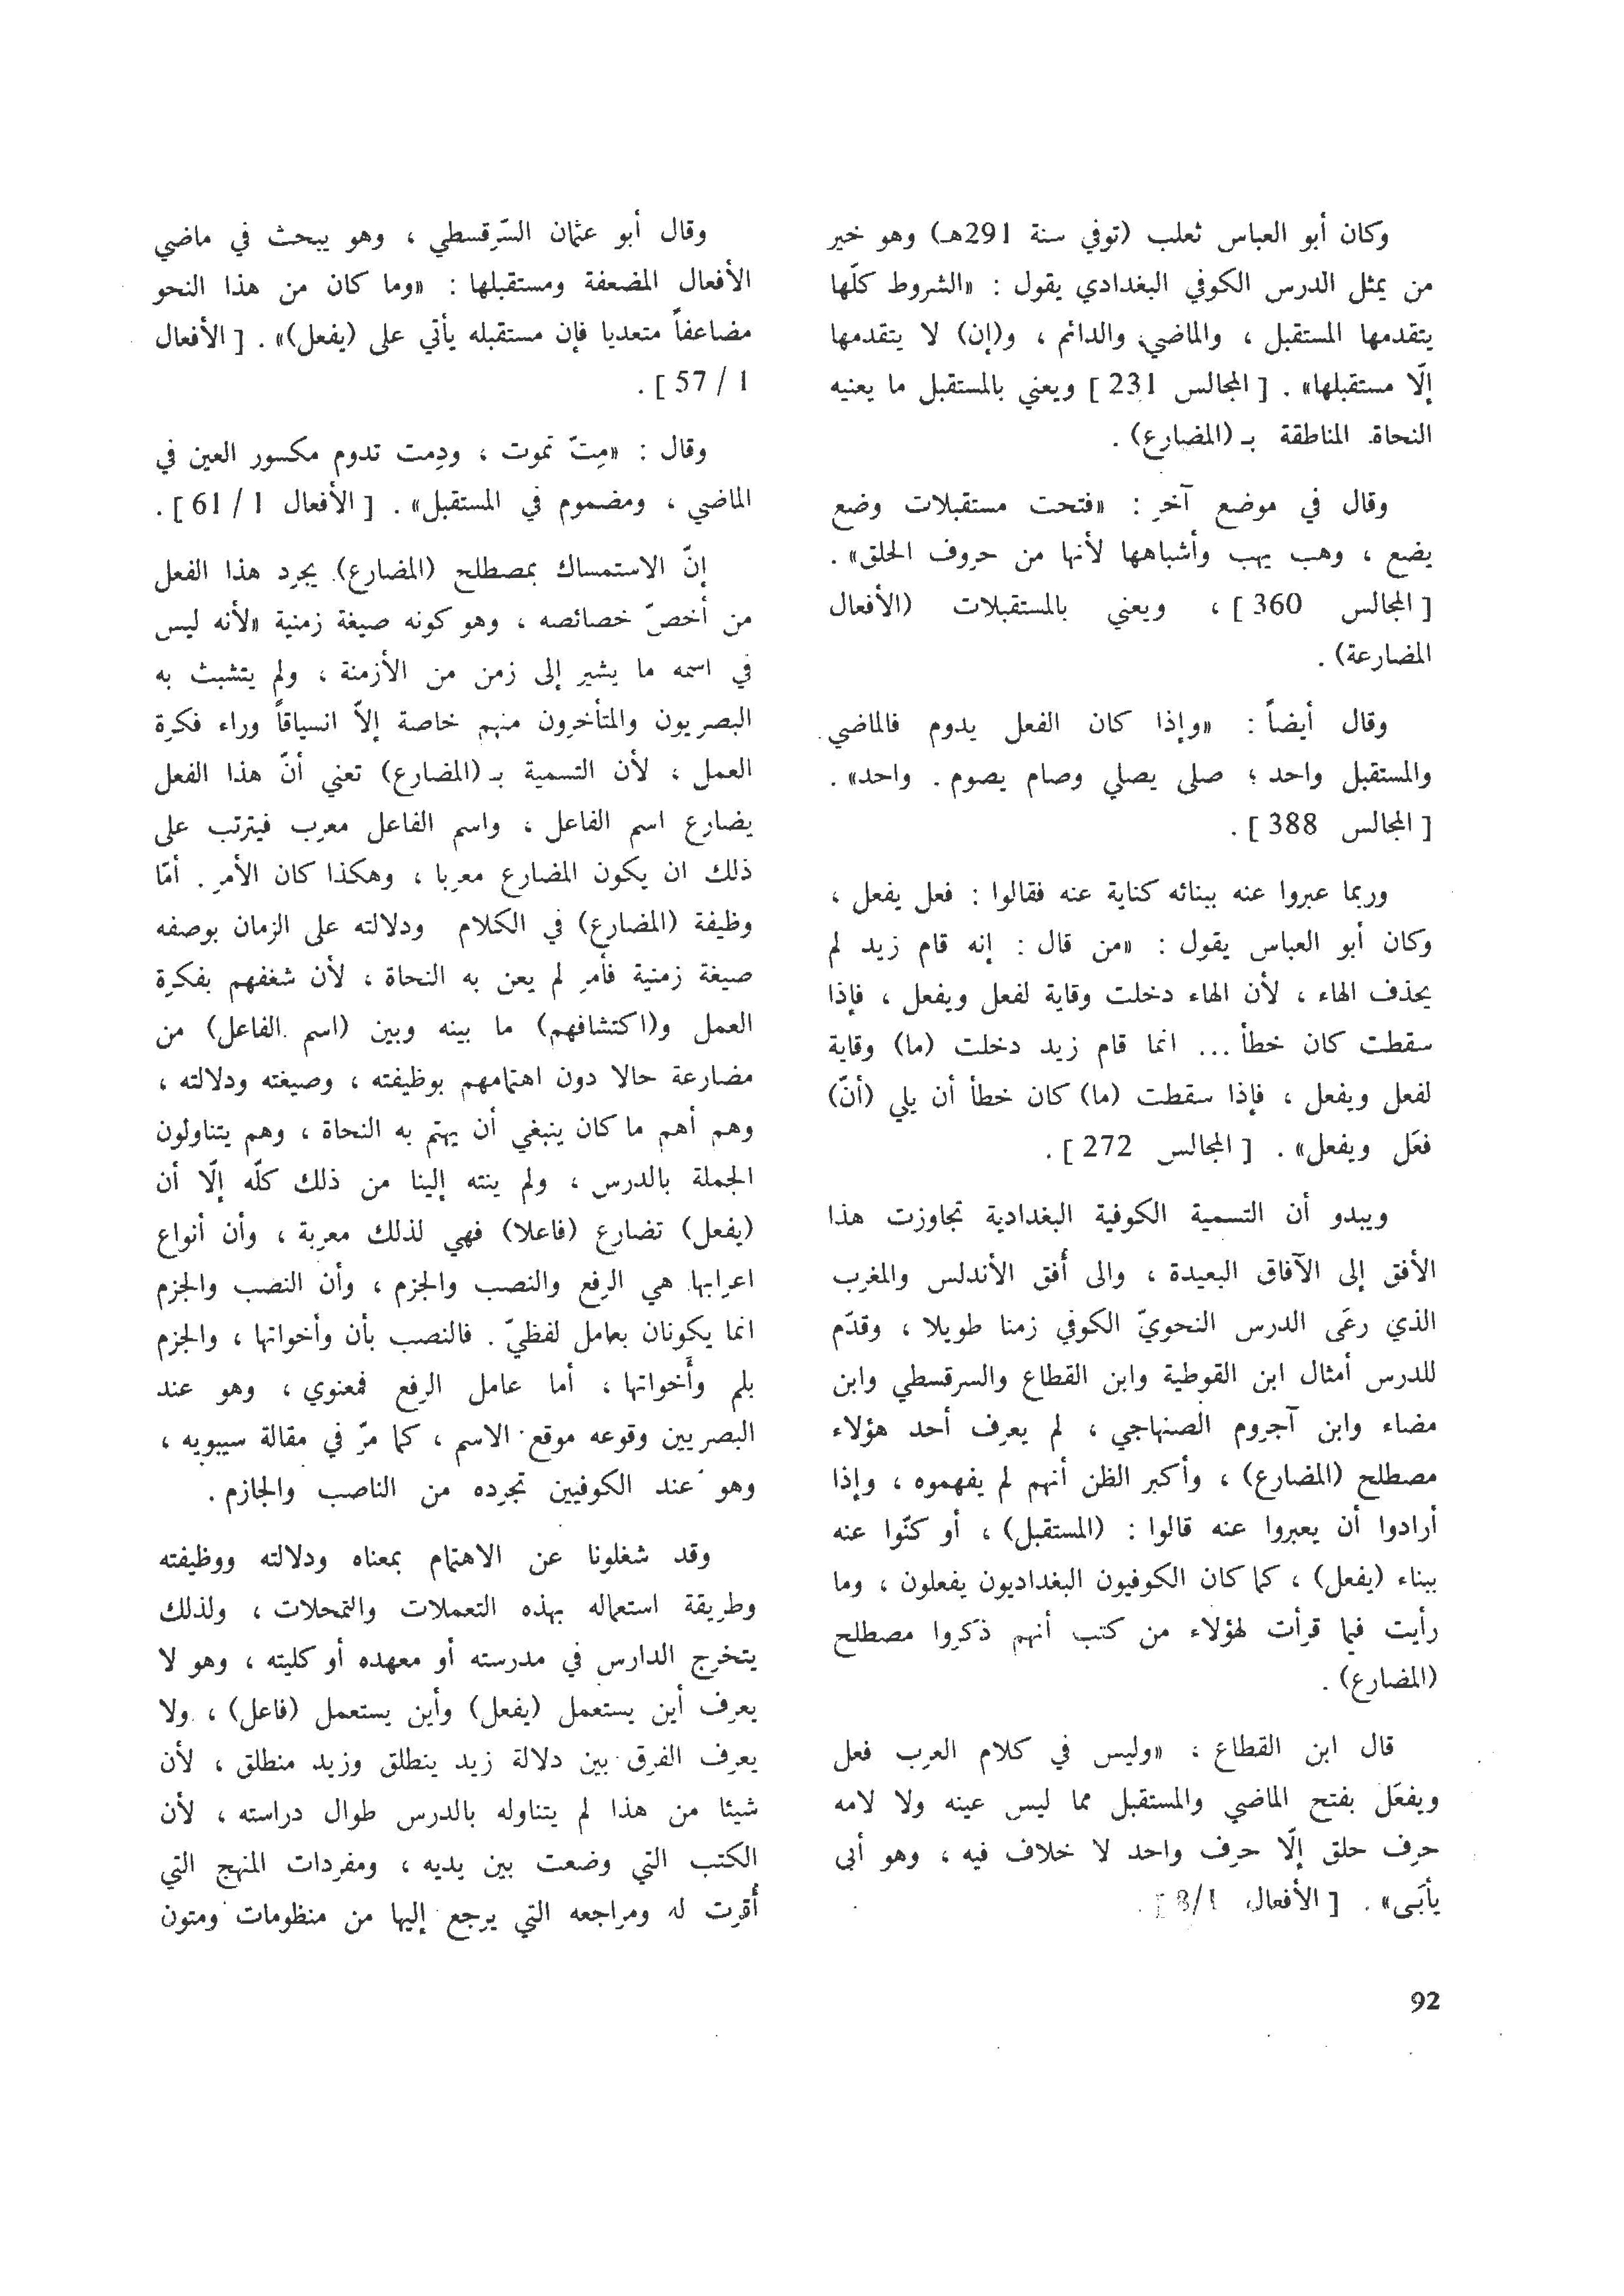 وكان أبو العباس ثعلب (توفي سنة 291هـ) وهو خير
من يمثل الدرس الكوفي البغدادي يقول : «الشروط كلّها
يتقدمها المستقبل ، والماضي والدائم ، و(إن) لا يتقدمها
إلّا مستقبلها» . [ المجالس 231 ] ويعني بالمستقبل ما يعنيه
النحاة المناطقة بـ (المضارع) .
وقال في موضع آخر : «فتحت مستقبلات وضع
يضع ، وهب يهب وأشباهها لأنها من حروف الحلق» .
[ المجالس 360 ] ، ويعني بالمستقبلات (الأفعال
المضارعة) .
وقال أيضاً : «وإذا كان الفعل يدوم فالماضي
والمستقبل واحد ؛ صلى يصلي وصام يصوم . واحد» .
[ المجالس 388 ] .
وربما عبروا عنه ببنائه كناية عنه فقالوا : فعل يفعل ،
وكان أبو العباس يقول : «من قال : إنه قام زيد لم
يحذف الهاء ، لأن الهاء دخلت وقاية لفعل ويفعل ، فإذا
سقطت كان خطأ ... انما قام زيد دخلت (ما) وقاية
لفعل ويفعل ، فإذا سقطت (ما) كان خطأ أن يلي (أنّ)
فعَل ويفعل» . [ المجالس 272 ] .
ويبدو أن التسمية الكوفية البغدادية تجاوزت هذا
الأفق إلى الآفاق البعيدة ، والى أفق الأندلس والمغرب
الذي رعَى الدرس النحويّ الكوفي زمنا طويلا ، وقدّم
للدرس أمثال ابن القوطية وابن القطاع والسرقسطي وابن
مضاء وابن آجروم الصنهاجي ، لم يعرف أحد هؤلاء
مصطلح (المضارع) ، وأكبر الظن أنهم لم يفهموه ، وإذا
أرادوا أن يعبروا عنه قالوا : (المستقبل) ، أو كنّوا عنه
ببناء (يفعل) ، كما كان الكوفيون البغداديون يفعلون ، وما
رأيت فيما قرأت لهؤلاء من كتب أنهم ذكروا مصطلح
(المضارع) .
قال ابن القطاع ، «وليس في كلام العرب فعل
ويفعَل بفتح الماضي والمستقبل مما ليس عينه ولا لامه
حرف حلق إلّا حرف واحد لا خلاف فيه ، وهو أبى
يأبَى» . [ الأفعال 8/1 ] .
وقال أبو عثمان السّرقسطي ، وهو يبحث في ماضي
الأفعال المضعفة ومستقبلها : «وما كان من هذا النحو
مضاعفاً متعديا فإن مستقبله يأتي على (يفعل)» . [ الأفعال
1 / 57 ] .
وقال : «مِتّ تموت ، ودِمت تدوم مكسور العين في
الماضي ، ومضموم في المستقبل» . [ الأفعال 1 / 61 ] .
إنّ الاستمساك بمصطلح (المضارع) يجرد هذا الفعل
من أخصّ خصائصه ، وهو كونه صيغة زمنية «لأنه ليس
في اسمه ما يشير إلى زمن من الأزمنة ، ولم يتشبث به
البصريون والمتأخرون منهم خاصة إلاّ انسياقاً وراء فكرة
العمل ، لأن التسمية بـ (المضارع) تعني أنّ هذا الفعل
يضارع اسم الفاعل ، واسم الفاعل معرب فيترتب على
ذلك ان يكون المضارع معربا ، وهكذا كان الأمر . أمّا
وظيفة (المضارع) في الكلام ودلالته على الزمان بوصفه
صيغة زمنية فأمر لم يعن به النحاة ، لأن شغفهم بفكرة
العمل و(اكتشافهم) ما بينه وبين (اسم الفاعل) من
مضارعة حالا دون اهتمامهم بوظيفته ، وصيغته ودلالته ،
وهم أهم ما كان ينبغي أن يهتم به النحاة ، وهم يتناولون
الجملة بالدرس ، ولم ينته إلينا من ذلك كلّه إلّا أن
(يفعل) تضارع (فاعلا) فهي لذلك معربة ، وأن أنواع
اعرابها هي الرفع والنصب والجزم ، وأن النصب والجزم
انما يكونان بعامل لفظيّ . فالنصب بأن وأخواتها ، والجزم
بلم وأخواتها ، أما عامل الرفع فمعنوي ، وهو عند
البصريين وقوعه موقع الاسم ، كما مرّ في مقالة سيبويه ،
وهو عند الكوفيين تجرده من الناصب والجازم .
وقد شغلونا عن الاهتمام بمعناه ودلالته ووظيفته
وطريقة استعماله بهذه التعملات والتمحلات ، ولذلك
يتخرج الدارس في مدرسته أو معهده أو كليته ، وهو لا
يعرف أين يستعمل (يفعل) وأين يستعمل (فاعل) ، ولا
يعرف الفرق بين دلالة زيد ينطلق وزيد منطلق ، لأن
شيئا من هذا لم يتناوله بالدرس طوال دراسته ، لأن
الكتب التي وضعت بين يديه ، ومفردات المنهج التي
أقرت له ومراجعه التي يرجع إليها من منظومات ومتون
92